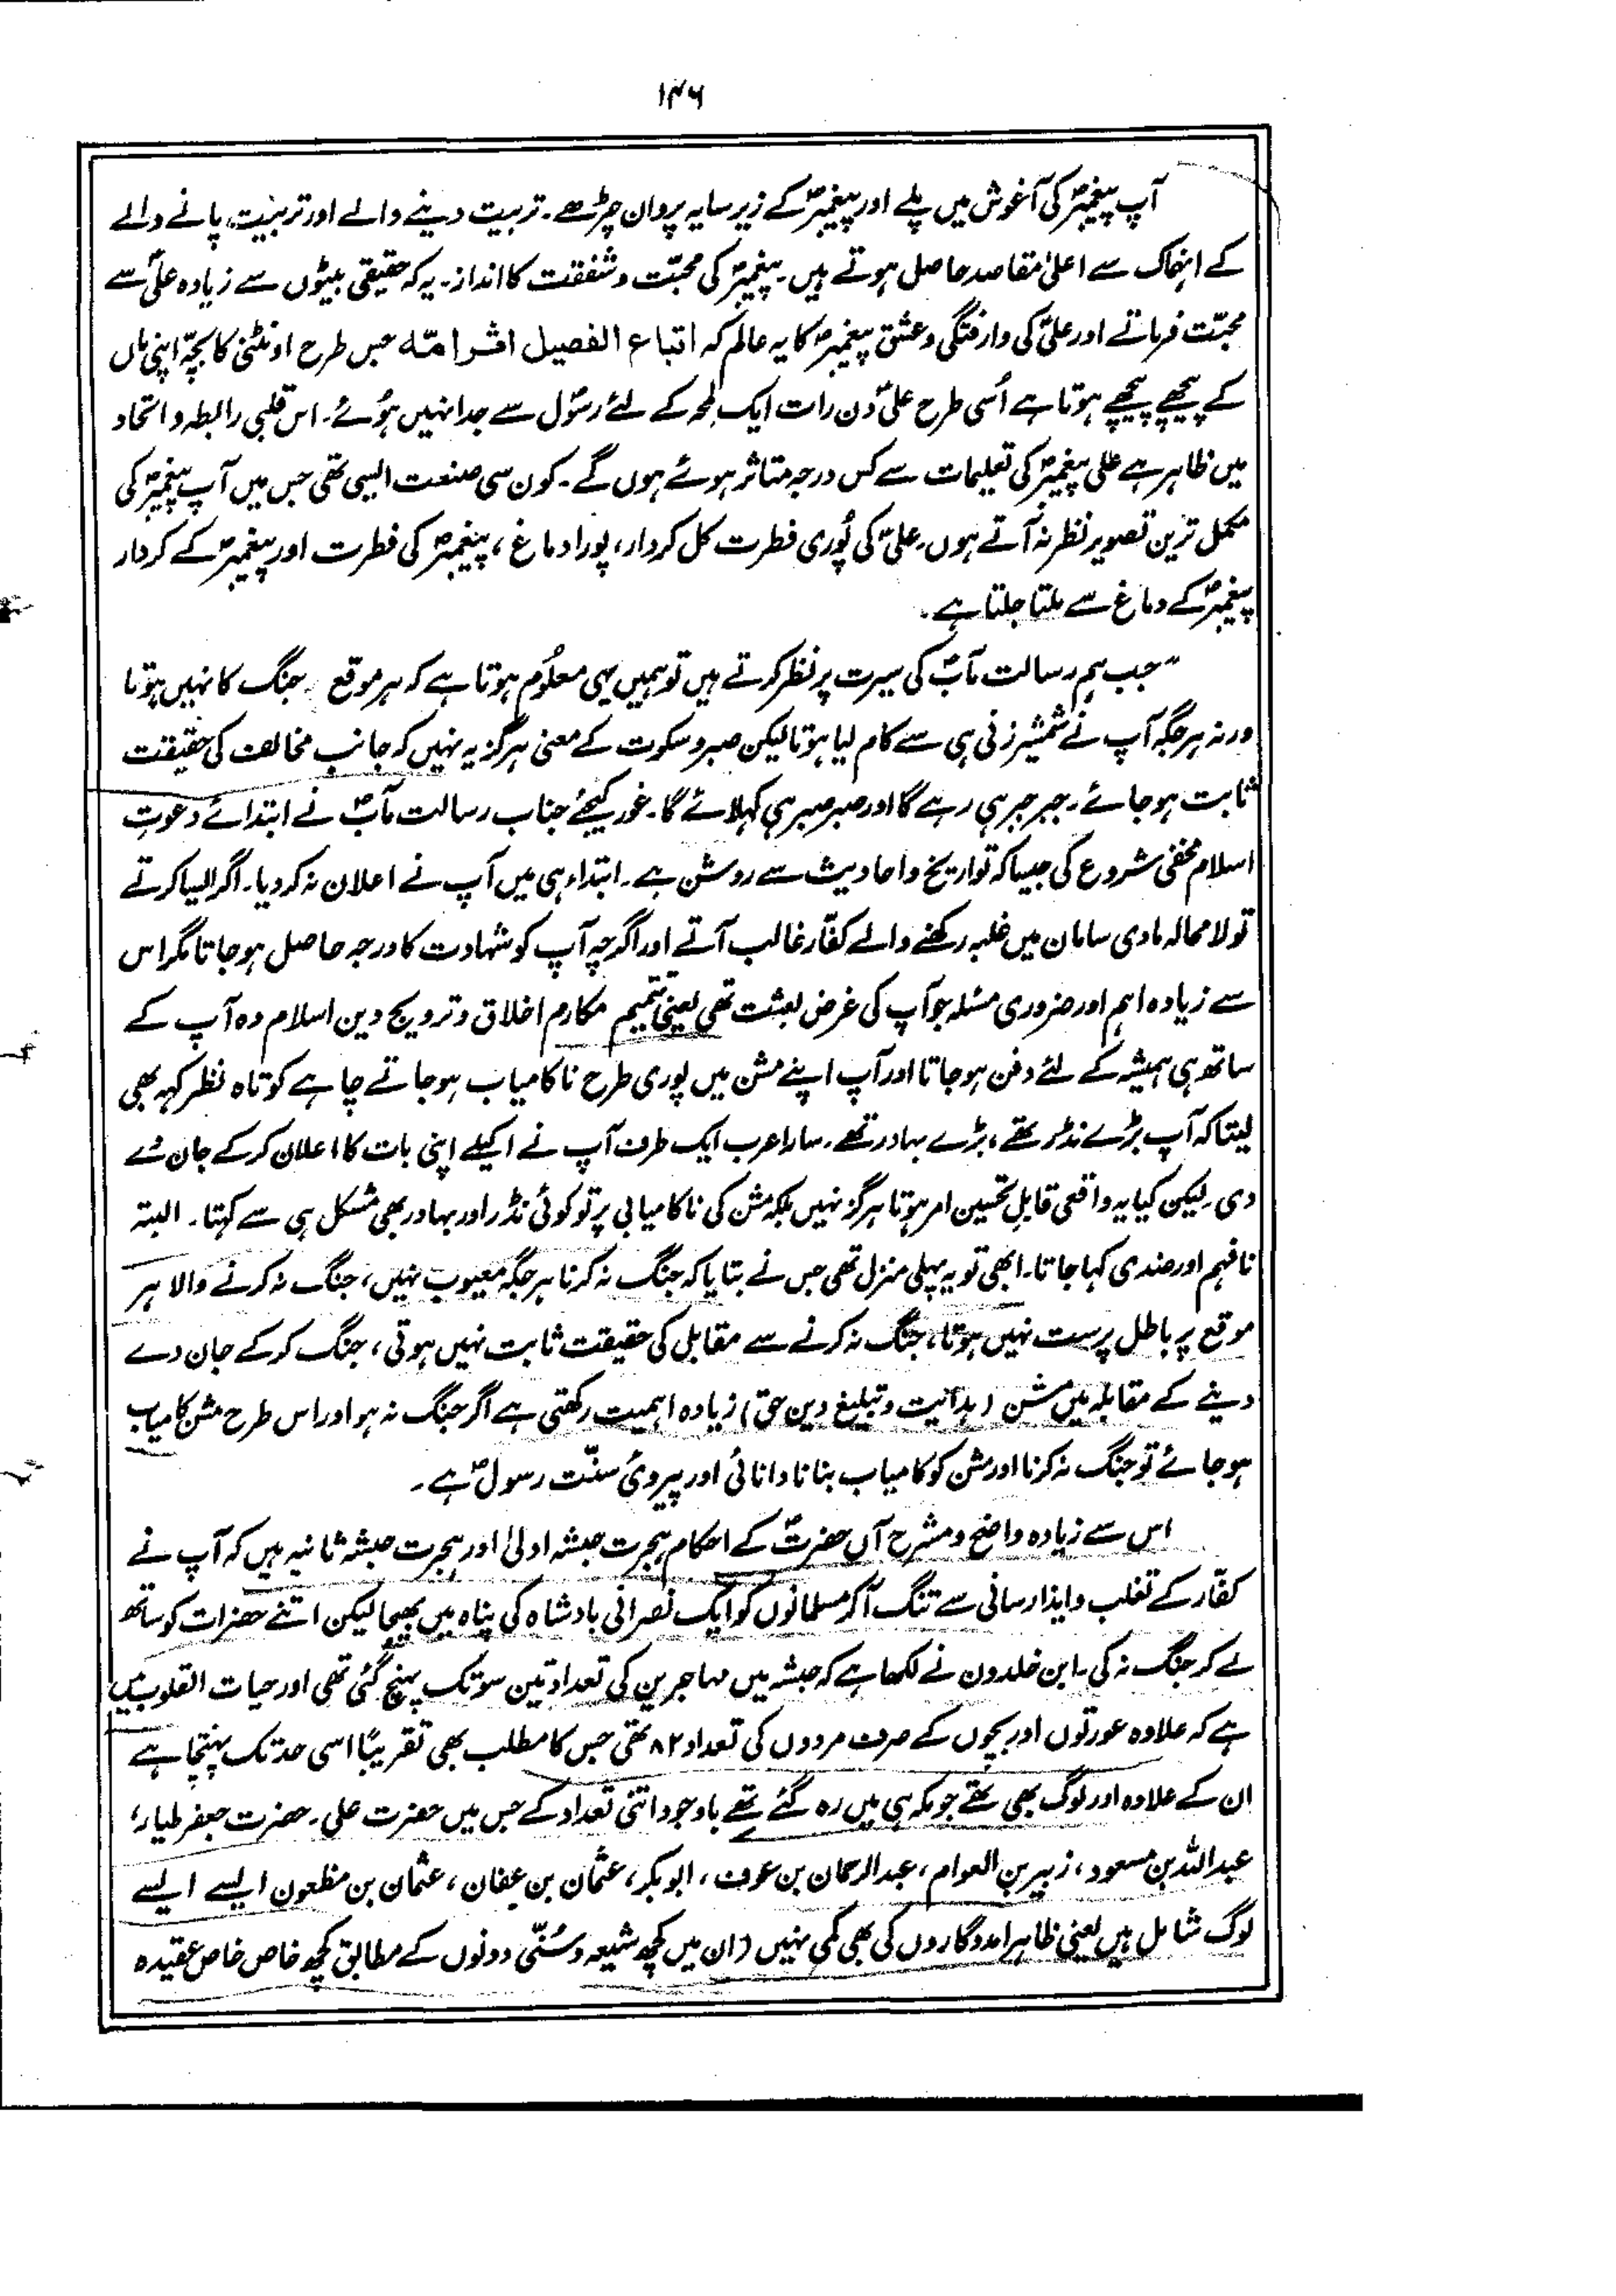 ۱۴۶
آپ پیغمبرؐ کی آغوش میں پلے اور پیغمبرؐ کے زیر سایہ پروان چڑھے۔ تربیت دینے والے اور تربیت پانے والے
کے انہماک سے اعلیٰ مقاصد حاصل ہوتے ہیں۔ پیغمبرؐ کی محبّت و شفقت کا انداز۔ یہ کہ حقیقی بیٹوں سے زیادہ علیؑ سے
محبّت فرماتے اور علیؑ کی وارفتگی و عشق پیغمبرؐ کا یہ عالم کہ اتباع الفصیل اثر امّہ جس طرح اونٹنی کا بچّہ اپنی ماں
کے پیچھے پیچھے ہوتا ہے اُسی طرح علیؑ دن رات ایک لمحہ کے لئے رسولؐ سے جدا نہیں ہوئے۔ اس قلبی رابطہ و اتحاد
میں ظاہر ہے علی پیغمبرؐ کی تعلیمات سے کس درجہ متاثر ہوئے ہوں گے۔ کون سی صنعت ایسی تھی جس میں آپ پیغمبرؐ کی
مکمل ترین تصویر نظر نہ آتے ہوں۔ علیؑ کی پُوری فطرت کل کردار، پورا دماغ، پیغمبرؐ کی فطرت اور پیغمبرؐ کے کردار
پیغمبرؐ کے دماغ سے ملتا جلتا ہے۔
"جب ہم رسالت مآبؐ کی سیرت پر نظر کرتے ہیں تو ہمیں یہی معلُوم ہوتا ہے کہ ہر موقع جنگ کا نہیں ہوتا
ورنہ ہر جگہ آپ نے شمشیر زنی ہی سے کام لیا ہوتا لیکن صبر و سکوت کے معنی ہرگز یہ نہیں کہ جانب مخالف کی حقیقت
ثابت ہو جائے۔ جبر جبر ہی رہے گا اور صبر صبر ہی کہلائے گا۔ غور کیجئے جناب رسالت مآبؐ نے ابتدائے دعوتِ
اسلام مخفی شروع کی جیسا کہ تواریخ و احادیث سے روشن ہے۔ ابتداء ہی میں آپ نے اعلان نہ کر دیا۔ اگر ایسا کرتے
تو لامحالہ مادی سامان میں غلبہ رکھنے والے کفّار غالب آتے اور اگرچہ آپ کو شہادت کا درجہ حاصل ہو جاتا مگر اس
سے زیادہ اہم اور ضروری مسئلہ جو آپ کی غرض بعثت تھی یعنی تتمیم مکارم اخلاق و ترویج دین اسلام وہ آپ کے
ساتھ ہی ہمیشہ کے لئے دفن ہو جاتا اور آپ اپنے مشن میں پوری طرح ناکامیاب ہو جاتے چاہے کوتاہ نظر کہہ بھی
لیتا کہ آپ بڑے نڈر تھے، بڑے بہادر تھے۔ سارا عرب ایک طرف آپ نے اکیلے اپنی بات کا اعلان کر کے جان دے
دی۔ لیکن کیا یہ واقعی قابلِ تحسین امر ہوتا ہرگز نہیں بلکہ مشن کی ناکامیابی پر تو کوئی نڈر اور بہادر بھی مشکل ہی سے کہتا۔ البتہ
نافہم اور ضدی کہا جاتا۔ ابھی تو یہ پہلی منزل تھی جس نے بتایا کہ جنگ نہ کرنا ہر جگہ معیوب نہیں، جنگ نہ کرنے والا ہر
موقع پر باطل پرست نہیں ہوتا، جنگ نہ کرنے سے مقابل کی حقیقت ثابت نہیں ہوتی، جنگ کر کے جان دے
دینے کے مقابلہ میں مشن (ہدائیت و تبلیغ دین حق) زیادہ اہمیت رکھتی ہے اگر جنگ نہ ہو اور اس طرح مشن کامیاب
ہو جائے تو جنگ نہ کرنا اور مشن کو کامیاب بنانا دانائی اور پیرویٔ سنّت رسولؐ ہے۔
اس سے زیادہ واضح و مشرح آں حضرتؐ کے احکام ہجرت حبشہ اولیٰ اور ہجرت حبشہ ثانیہ ہیں کہ آپ نے
کفّار کے تغلب و ایذا رسانی سے تنگ آ کر مسلمانوں کو ایک نصرانی بادشاہ کی پناہ میں بھیجا لیکن اتنے حضرات کو ساتھ
لے کر جنگ نہ کی۔ ابن خلدون نے لکھا ہے کہ حبشہ میں مہاجرین کی تعداد تین سو تک پہنچ گئی تھی اور حیات القلوب میں
ہے کہ علاوہ عورتوں اور بچوں کے صرف مردوں کی تعداد ۸۲ تھی جس کا مطلب بھی تقریباً اسی حد تک پہنچتا ہے
ان کے علاوہ اور لوگ بھی تھے جو مکہ ہی میں رہ گئے تھے باوجود اتنی تعداد کے جس میں حضرت علی۔ حضرت جعفر طیار،
عبداللہ بن مسعود، زبیر بن العوام، عبدالرحمان بن عوف، ابوبکر، عثمان بن عفان، عثمان بن مظعون ایسے ایسے
لوگ شامل ہیں یعنی ظاہرا مددگاروں کی بھی کمی نہیں (ان میں کچھ شیعہ و سُنّی دونوں کے مطابق کچھ خاص خاص عقیدہ